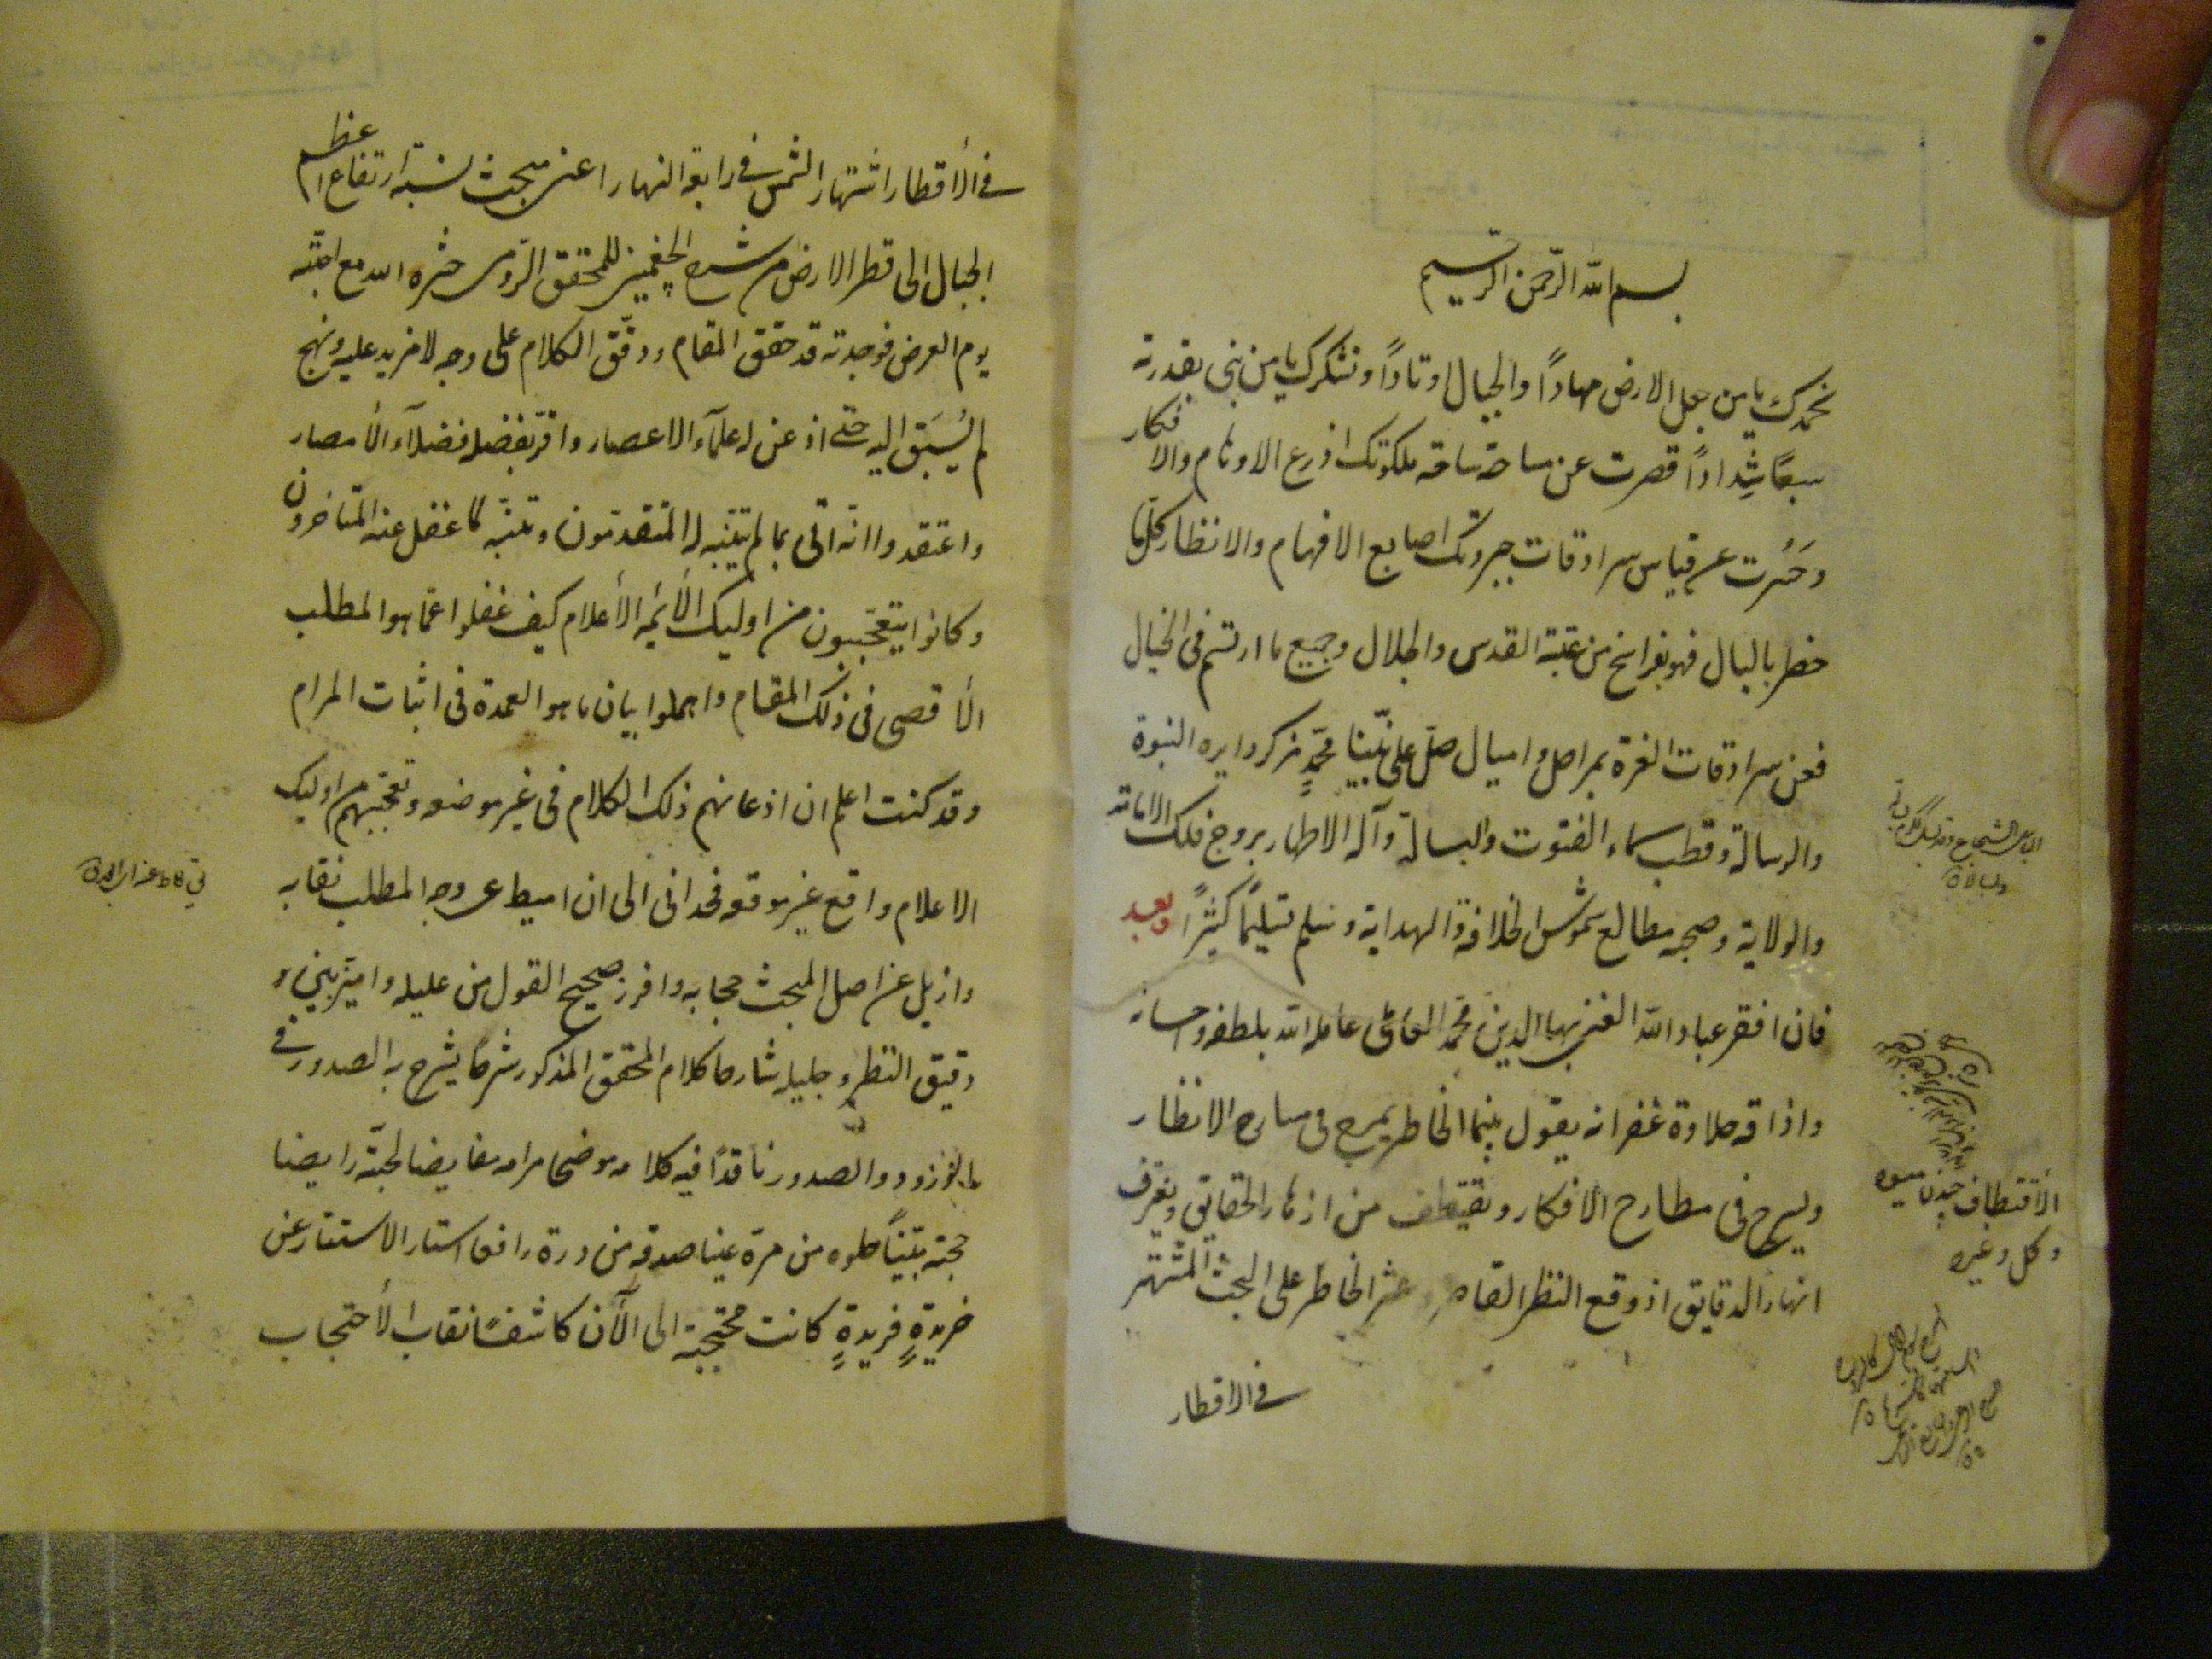 بسم الله الرّحمن الرّحيم
نحمدك يا من جعل الارض مهاداً والجبال اوتاداً ونشكرك يا من بنى بقدرته
سبعًا شِداداً قصرت عن مساحة ساحة ملكوتك اذرع الاوهام والافكار
وحَسُرت عن قياس سرادقات جبروتك اصابع الافهام والانظار كلّما
خطر بالبال فهو بفراسخ من عتبة القدس والجلال وجميع ما ارتسم فى الخيال
فعن سرادقات العزة بمراحل واميال صلّ على نبيّنا محمّدٍ مركز دايره النبوة
والرسالة وقطب سماء الفتوت والبسالة وآله الاطهار بروج فلك الامامة
والولاية وصحبه مطالع شموس الخلافة والهداية وسلم تسليمًا كثيرًا وبعد
فان افقر عباد الله الغنى بهاء الدين محمّد العاملى عامله الله بلطفه واحسانه
واذاقه حلاوة غفرانه يقول بينما الخاطر يمرح فى مسارح الانظار
ويسرح فى مطارح الافكار ويقتطف من ازهار الحقايق ويغرف
انهار الدقايق اذ وقع النظر القاصر وعثر الخاطر على البحث المشتهر
فى الاقطار
الأقتطاف چيدن ميوه
وكل وغيره
فى الأقطار اشتهار الشمس فى رابعة النهار اعنى مبحث نسبة ارتفاع اعظم
الجبال الى قطر الارض من شرح الچغمينى للمحقق الرّومى حشره الله مع احبّته
يوم العرض فوجدته قد حقق المقام ودقّق الكلام على وجه لا مزيد عليه ونهج
لم يُسبَق اليه حتى اذعن له علمآء الاعصار واقرّ بفضله فضلآء الأمصار
واعتقدوا انّه اتى بما لم يتنبّه له المتقدمون وتنبّه لما غفل عنه المتاخرون
وكانوا يتعجّبون من اوليك الأئمه الأعلام كيف غفلوا عمّا هو المطلب
الأقصى فى ذلك المقام واهملوا بيان ما هو العمدة فى اثبات المرام
وقد كنت اعلم ان اذعانهم ذلك الكلام فى غير موضعه وتعجّبهم من اوليك
الاعلام واقع غير موقعه فحدانى الى ان اميط عن وجه المطلب نقابه
وازيل عن اصل المبحث حجابه وافرز صحيح القول من عليله واميّز بين
دقيق النظر وجليله شارحا كلام المحقق المذكور شرحًا يشرح به الصدور فى
الورود والصدور ناقدًا فيه كلامه موضحا مرامه مغايضا لجبّة رايضا
حجته مبيّناً حلوه من مره عينا صدفه من درة رافعا استار الاستتار عن
خريدةٍ فريدةٍ كانت محتجبة الى الآن كاشفًا نقاب الأحتجاب